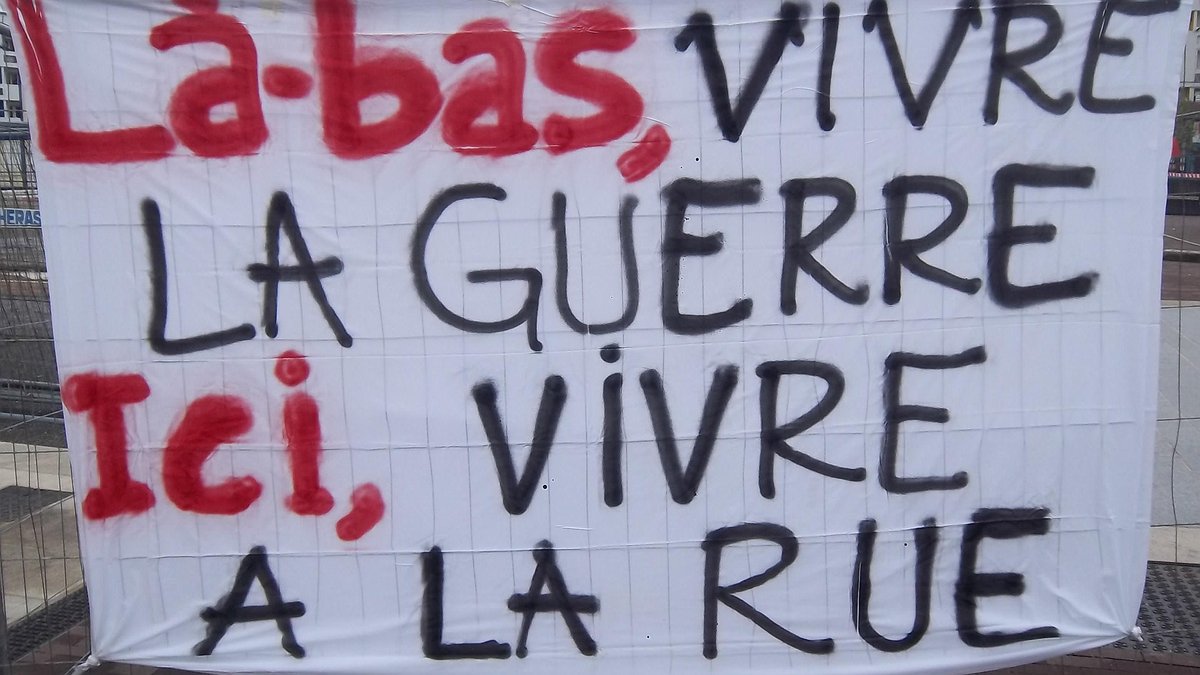 Là-bas, VIVRE
LA GUERRE
Ici, ViVRE
A LA RUE
HERAS